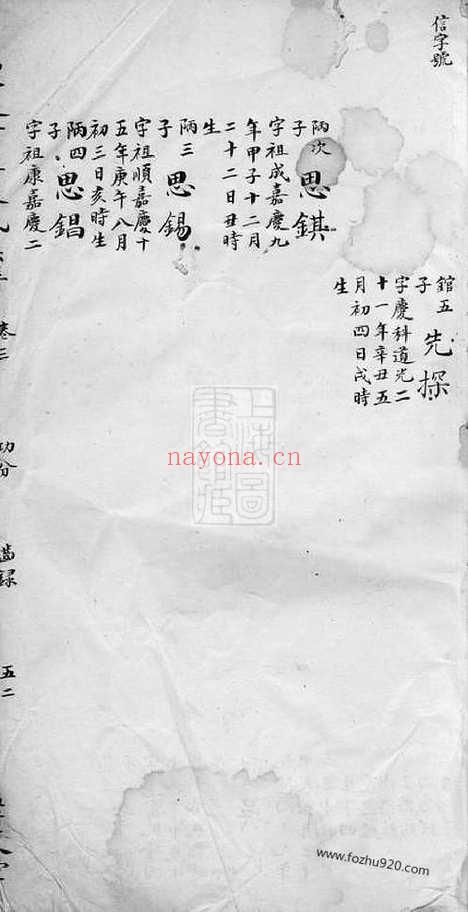 信字號
館五
子
先探
字慶科道光二
十一年辛丑五
月初四日戌時
生
陑次
子
思錤
字祖成嘉慶九
年甲子十二月
二十二日丑時
生
陑三
子
思錫
字祖順嘉慶十
五年庚午八月
初三日亥時生
陑四
子
思錩
字祖康嘉慶二
卷三
齒録
五二
上海圖
書館藏
nayona.cn
www.fozhu920.com